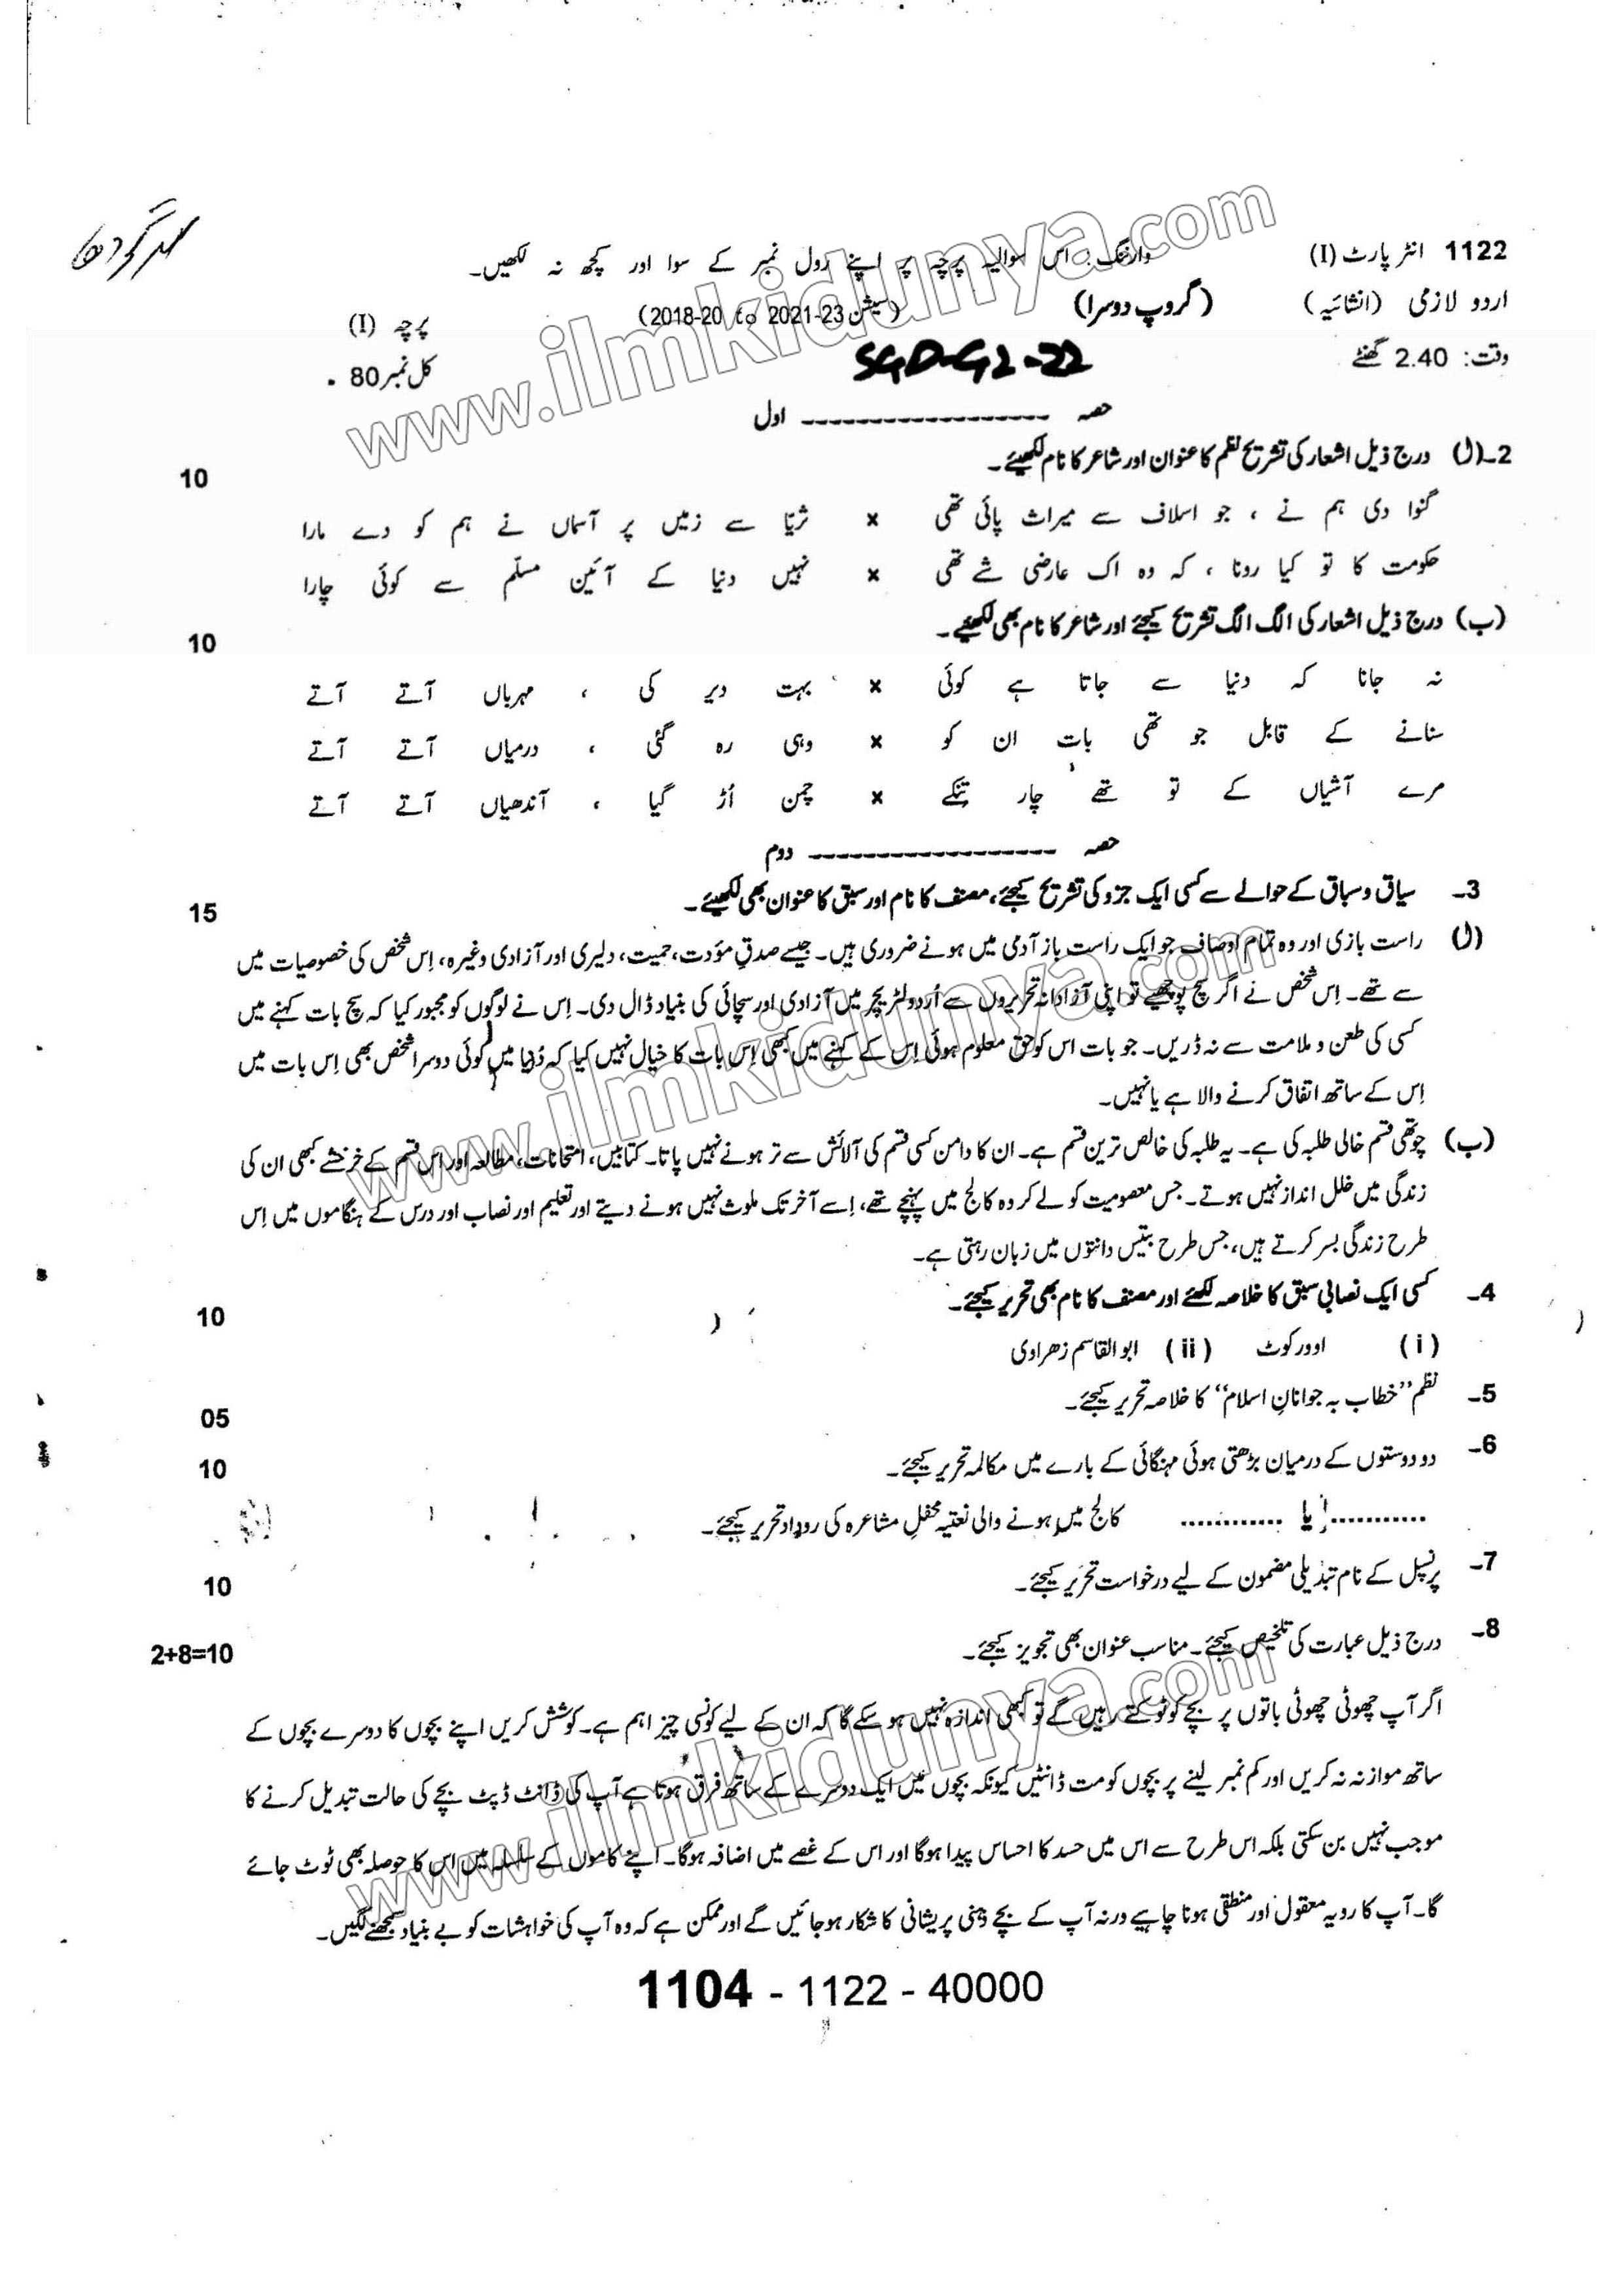 سرگودھا
1122 انٹر پارٹ (I) وارننگ: اس سوالیہ پرچہ پر اپنے رول نمبر کے سوا اور کچھ نہ لکھیں۔
اردو لازمی (انشائیہ) (گروپ دوسرا) (سیشن 2018-20 to 2021-23) پرچہ (I)
وقت: 2.40 گھنٹے SGD-G2-22 کل نمبر 80
حصہ ------------------ اول
2۔ (ا) درج ذیل اشعار کی تشریح نظم کا عنوان اور شاعر کا نام لکھیئے۔ 10
گنوا دی ہم نے ، جو اسلاف سے میراث پائی تھی × ثریّا سے زمیں پر آسماں نے ہم کو دے مارا
حکومت کا تو کیا رونا ، کہ وہ اک عارضی شے تھی × نہیں دنیا کے آئین مسلّم سے کوئی چارا
(ب) درج ذیل اشعار کی الگ الگ تشریح کیجئے اور شاعر کا نام بھی لکھیئے۔ 10
نہ جانا کہ دنیا سے جاتا ہے کوئی × بہت دیر کی ، مہرباں آتے آتے
سنانے کے قابل جو تھی بات ان کو × وہی رہ گئی ، درمیاں آتے آتے
مرے آشیاں کے تو تھے چار تنکے × چمن اُڑ گیا ، آندھیاں آتے آتے
حصہ ------------------ دوم
3۔ سیاق و سباق کے حوالے سے کسی ایک جزو کی تشریح کیجئے، مصنف کا نام اور سبق کا عنوان بھی لکھیئے۔ 15
(ا) راست بازی اور وہ تمام اوصاف جو ایک راست باز آدمی میں ہونے ضروری ہیں۔ جیسے صدقِ مؤدت، حمیت، دلیری اور آزادی وغیرہ، اِس شخص کی خصوصیات میں
سے تھے۔ اِس شخص نے اگر سچ پوچھیے تو اپنی آزادانہ تحریروں سے اُردو لٹریچر میں آزادی اور سچائی کی بنیاد ڈال دی۔ اِس نے لوگوں کو مجبور کیا کہ سچ بات کہنے میں
کسی کی طعن و ملامت سے نہ ڈریں۔ جو بات اس کو حق معلوم ہوئی اِس کے کہنے میں کبھی اِس بات کا خیال نہیں کیا کہ دُنیا میں کوئی دوسرا شخص بھی اِس بات میں
اِس کے ساتھ اتفاق کرنے والا ہے یا نہیں۔
(ب) چوتھی قسم خالی طلبہ کی ہے۔ یہ طلبہ کی خالص ترین قسم ہے۔ ان کا دامن کسی قسم کی آلائش سے تر ہونے نہیں پاتا۔ کتابیں، امتحانات، مطالعہ اور اس قسم کے خرخشے کبھی ان کی
زندگی میں خلل انداز نہیں ہوتے۔ جس معصومیت کو لے کر وہ کالج میں پہنچے تھے، اِسے آخر تک ملوث نہیں ہونے دیتے اور تعلیم اور نصاب اور درس کے ہنگاموں میں اِس
طرح زندگی بسر کرتے ہیں، جس طرح بتیس دانتوں میں زبان رہتی ہے۔
4۔ کسی ایک نصابی سبق کا خلاصہ لکھئے اور مصنف کا نام بھی تحریر کیجئے۔ 10
(i) اوورکوٹ (ii) ابوالقاسم زھراوی
5۔ نظم ’’خطاب بہ جوانانِ اسلام‘‘ کا خلاصہ تحریر کیجئے۔ 05
6۔ دو دوستوں کے درمیان بڑھتی ہوئی مہنگائی کے بارے میں مکالمہ تحریر کیجئے۔ 10
............ یا ............ کالج میں ہونے والی نعتیہ محفلِ مشاعرہ کی روداد تحریر کیجئے۔
7۔ پرنسپل کے نام تبدیلی مضمون کے لیے درخواست تحریر کیجئے۔ 10
8۔ درج ذیل عبارت کی تلخیص کیجئے۔ مناسب عنوان بھی تجویز کیجئے۔ 2+8=10
اگر آپ چھوٹی چھوٹی باتوں پر بچے کو ٹوکتے رہیں گے تو کبھی اندازہ نہیں ہو سکے گا کہ ان کے لیے کونسی چیز اہم ہے۔ کوشش کریں اپنے بچوں کا دوسرے بچوں کے
ساتھ موازنہ نہ کریں اور کم نمبر لینے پر بچوں کو مت ڈانٹیں کیونکہ بچوں میں ایک دوسرے کے ساتھ فرق ہوتا ہے آپ کی ڈانٹ ڈپٹ بچے کی حالت تبدیل کرنے کا
موجب نہیں بن سکتی بلکہ اس طرح سے اس میں حسد کا احساس پیدا ہوگا اور اس کے غصے میں اضافہ ہوگا۔ اپنے کاموں کے سلسلہ میں اس کا حوصلہ بھی ٹوٹ جائے
گا۔ آپ کا رویہ معقول اور منطقی ہونا چاہیے ورنہ آپ کے بچے ذہنی پریشانی کا شکار ہو جائیں گے اور ممکن ہے کہ وہ آپ کی خواہشات کو بے بنیاد سمجھنے لگیں۔
1104 - 1122 - 40000
www.ilmkidunya.com
www.ilmkidunya.com
www.ilmkidunya.com